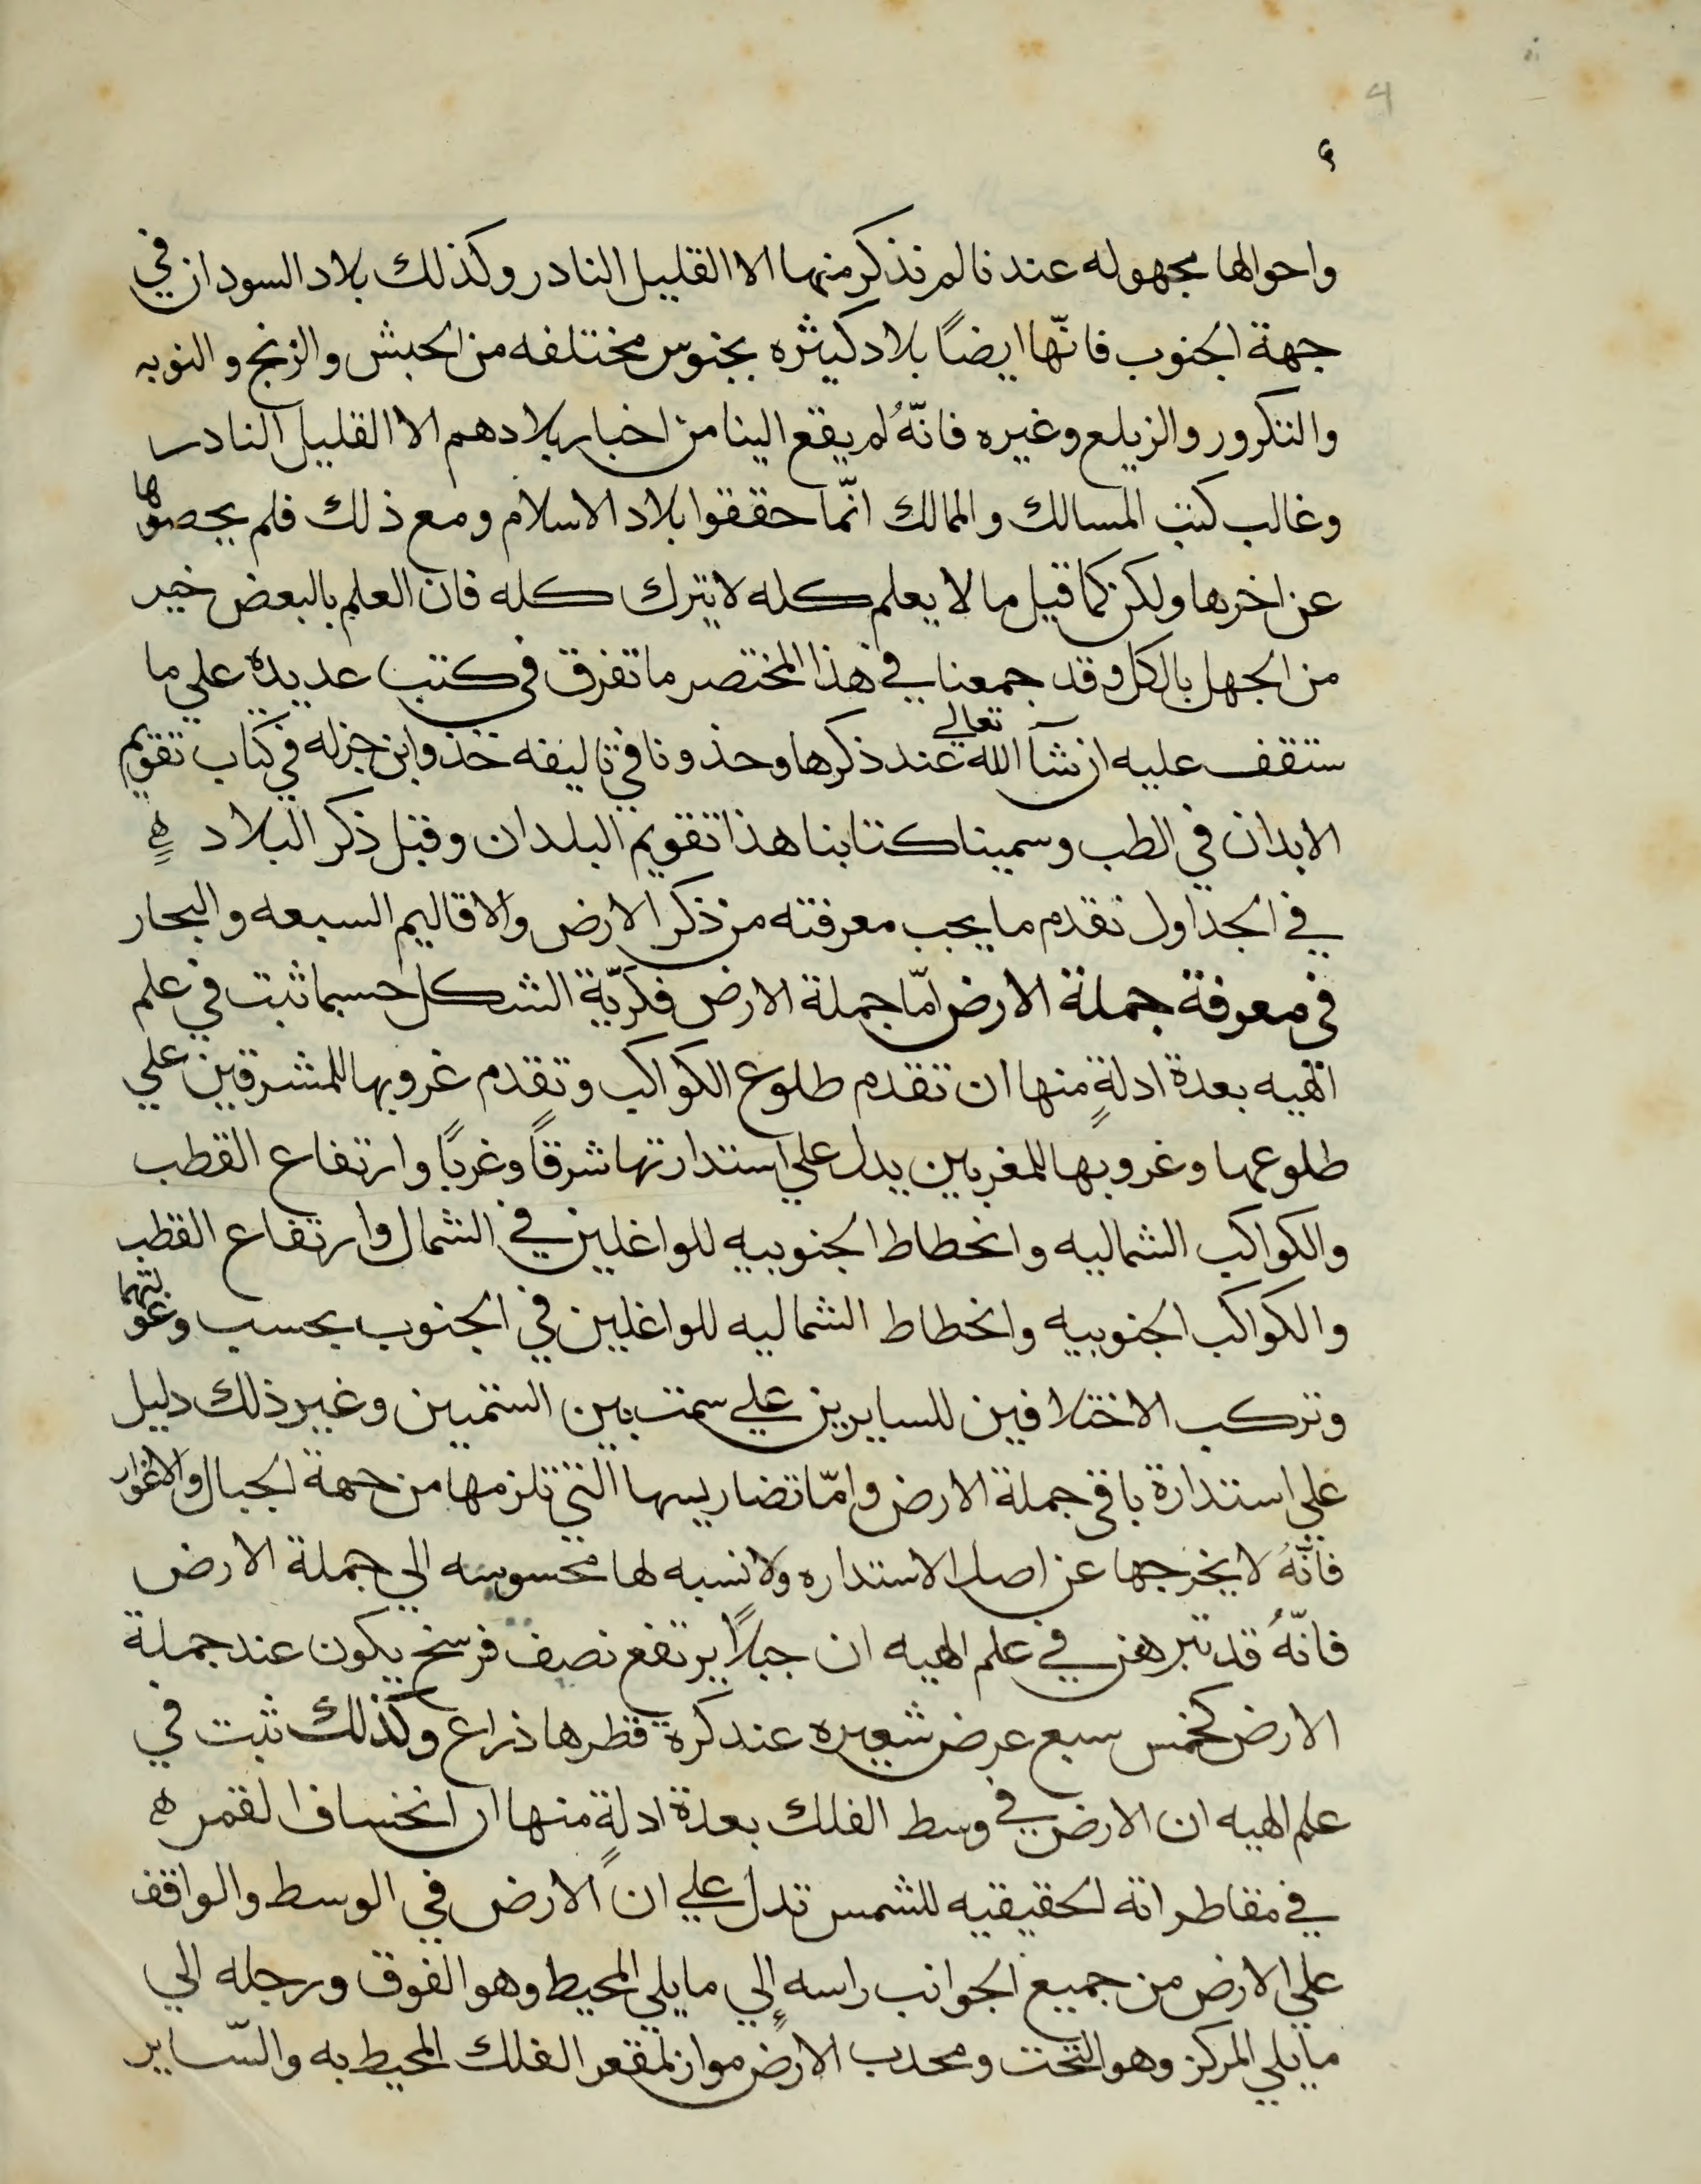 4
٤
واحوالها مجهوله عندنا لم نذكر منها الا القليل النادر وكذلك بلاد السودان في
جهة الجنوب فانّها ايضًا بلاد كثيره بجنوس مختلفه من الحبش والزنج والنوبه
والتكرور والزيلع وغيره فانّهُ لم يقع الينا من اخبار بلادهم الا القليل النادر
وغالب كتب المسالك والممالك انّما حققوا بلاد الاسلام ومع ذلك فلم يحصوها
عن اخرها ولكن كما قيل ما لا يعلم كله لا يترك كله فان العلم بالبعض خير
من الجهل بالكل وقد جمعنا في هذا المختصر ما تفرق في كتب عديدة علي ما
ستقف عليه ان شآ الله تعالي عند ذكرها وحذونا في تاليفه حذو ابن جزله في كتاب تقويم
الابدان في الطب وسمينا كتابنا هذا تقويم البلدان وقبل ذكر البلاد ه
في الجداول نقدم ما يجب معرفته من ذكر الارض والاقاليم السبعه والبحار
في معرفة جملة الارض امّا جملة الارض فكرّية الشكل حسبما ثبت في علم
الهيه بعدة ادلةٍ منها ان تقدم طلوع الكواكب وتقدم غروبها للمشرقين علي
طلوعها وغروبها للمغربين يدل علي استدارتها شرقًا وغربًا وارتفاع القطب
والكواكب الشماليه وانحطاط الجنوبيه للواغلين في الشمال وارتفاع القطب
والكواكب الجنوبيه وانحطاط الشماليه للواغلين في الجنوب بحسب وغولتهما
وتركب الاختلافين للسايرين علي سمت بين السمتين وغير ذلك دليل
علي استدارة باقي جملة الارض وامّا تضاريسها التي تلزمها من جهة الجبال والاغوار
فانّهُ لا يخرجها عن اصل الاستداره ولا نسبه لها محسوسه الي جملة الارض
فانّهُ قد تبرهن في علم الهيه ان جبلًا يرتفع نصف فرسخ يكون عند جملة
الارض كخمس سبع عرض شعيره عند كرة قطرها ذراع وكذلك ثبت في
علم الهيه ان الارض في وسط الفلك بعدة ادلةٍ منها ان انخساف القمر ه
في مقاطراته الحقيقيه للشمس تدل علي ان الارض في الوسط والواقف
علي الارض من جميع الجوانب راسه إلي ما يلي المحيط وهو الفوق ورجله الي
ما يلي المركز وهو التحت ومحدب الارض مواز لمقعر الفلك المحيط به والسّاير